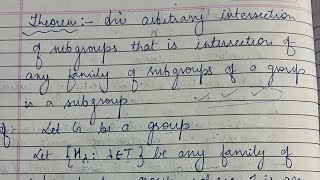 Theorem:- An arbitrary intersection
of subgroups that is intersection of
any family of subgroups of a group
is a subgroup.
of:- Let G be a group
Let {Hλ: λ∈T} be any family of